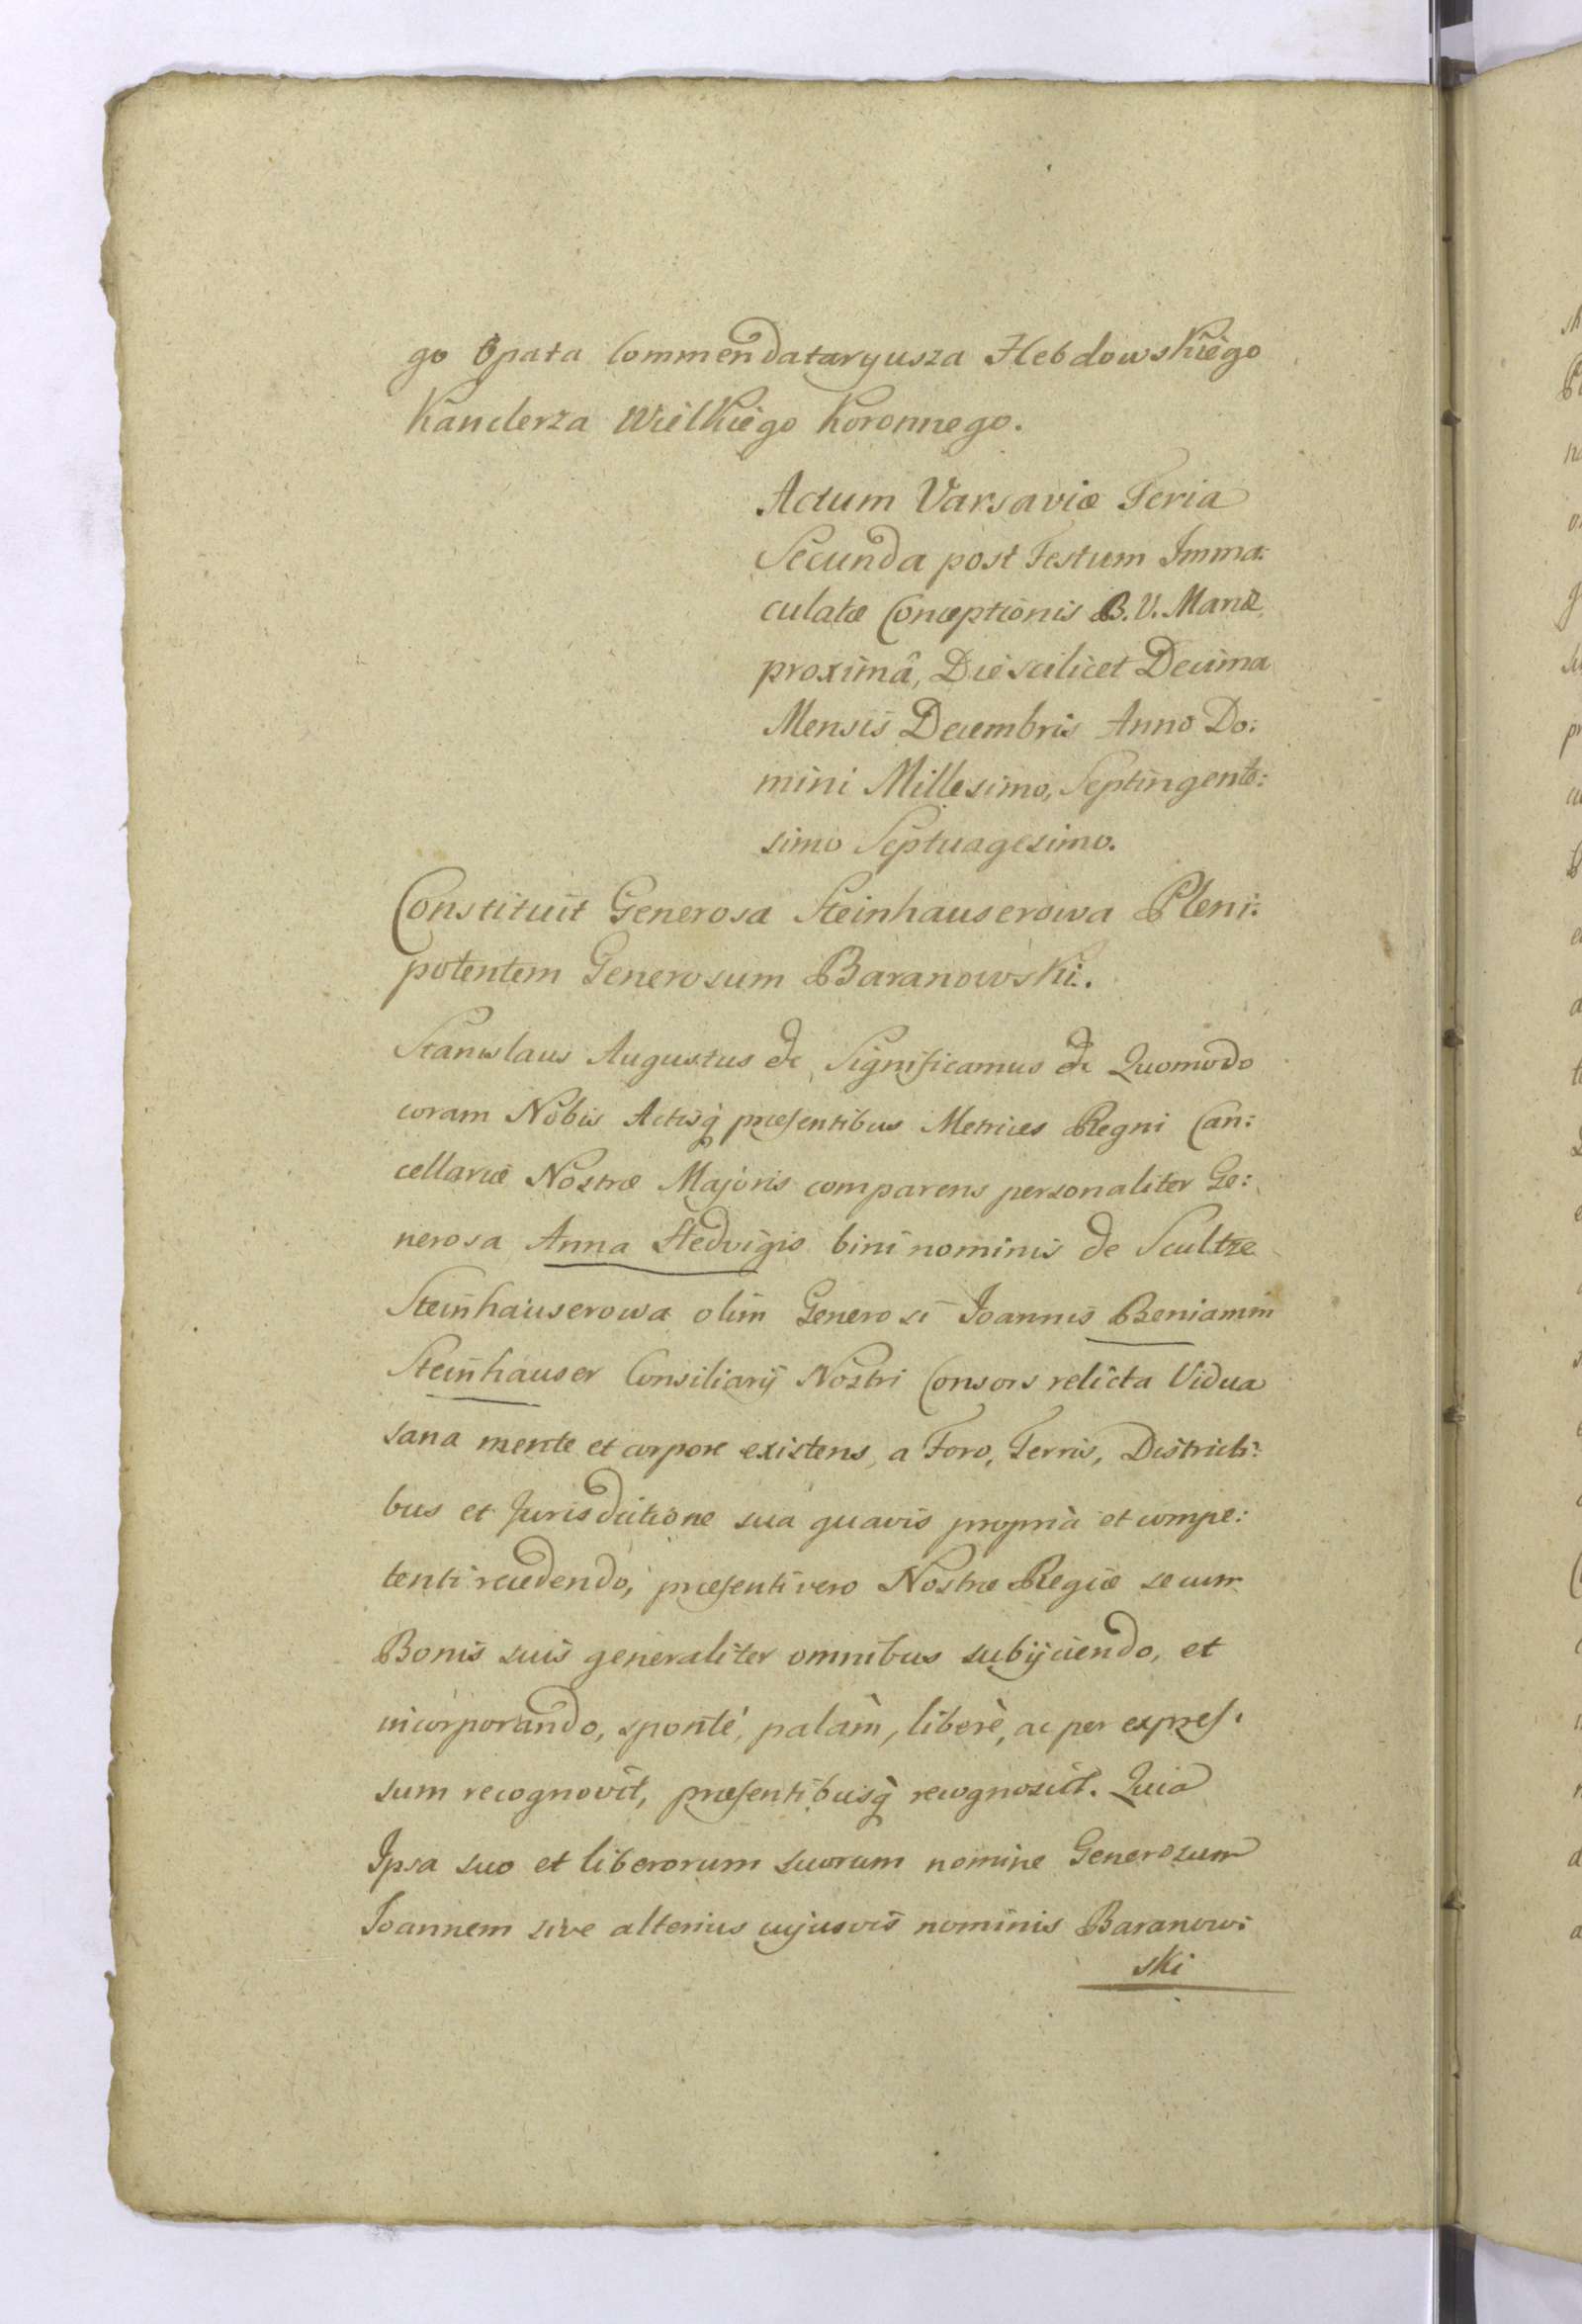 go Opata Commendataryusza Hebdowskiego
Kanclerza Wielkiego Koronnego.
Actum Varsaviæ Feria
Secunda post Festum Imma:
culatæ Conceptionis B. V. Mariæ
proximâ, Die scilicet Decima
Mensis Decembris Anno Do:
mini Millesimo, Septingente:
simo Septuagesimo.
Constituit Generosa Steinhauserowa Pleni:
potentem Generosum Baranowski.
Stanislaus Augustus &c Significamus &c Quomodo
coram Nobis Actisq̀ præsentibus Metrices Regni Can:
cellariæ Nostræ Majoris comparens personaliter Ge:
nerosa Anna Hedvigis bini nominis de Scultze
Steinhauserowa olim Generosi Joannis Beniamin
Steinhauser Consiliarij Nostri Consors relicta Vidua
sana mente et corpore existens, a Foro, Terris, Districti:
bus et Jurisdictione sua quavis propria et compe:
tenti recedendo, præsenti vero Nostræ Regiæ se cum
Bonis suis generaliter omnibus subijciendo, et
incorporando, sponté, palàm, liberè, ac per expres:
sum recognovit, præsentibusq̀ recognoscit. Quia
Ipsa suo et liberorum suorum nomine Generosum
Joannem sive alterius cujusvis nominis Baranow:
ski